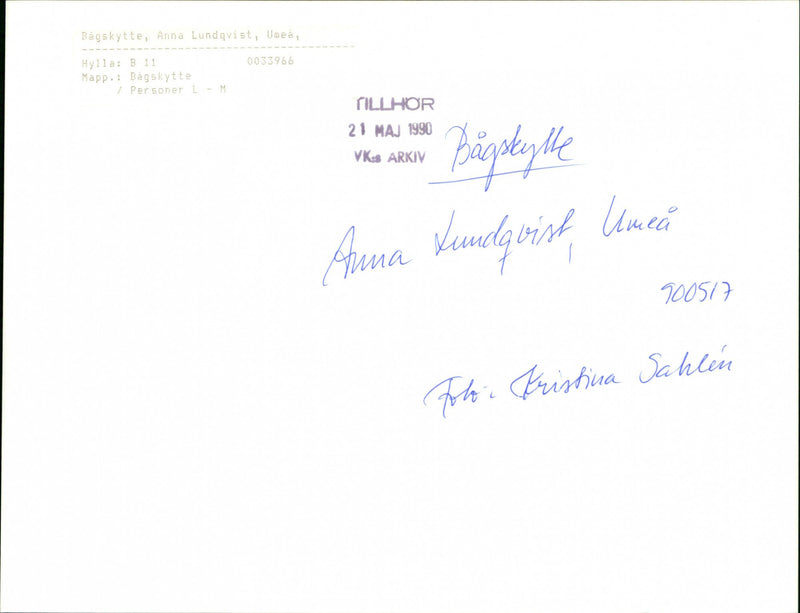 Bågskytte, Anna Lundqvist, Umeå,
Hylla: B 11 0033966
Mapp.: Bågskytte
/ Personer L - M
TILLHÖR
21 MAJ 1990
VK:s ARKIV
Bågskytte
Anna Lundqvist, Umeå
900517
Foto: Kristina Sahlén